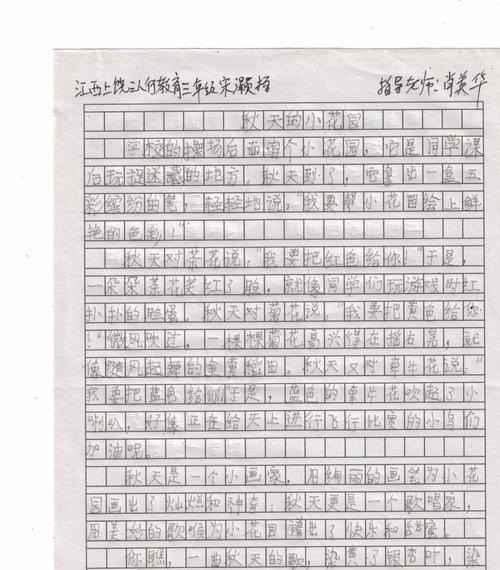 江西上饶三人何教育三年级宋灏扬 指导老师:肖美华
秋天的小花园
学校的操场后面有个小花园,它是同学课
后玩捉迷藏的地方。秋天到了,它拿出一盒五
彩缤纷的笔,轻轻地说:“我要帮小花园绘上鲜
艳的色彩!”
秋天对茶花说:“我要把红色给你!”于是,
一朵朵茶花羞红了脸,就像同学们玩游戏时红
扑扑的脸蛋。秋天对菊花说:“我要把黄色给你
!”微风吹过,一棵棵菊花高兴得左摇右晃,就
像随风起舞的金黄稻田。秋天又对牵牛花说:“
我要把蓝色给你!”于是,蓝色的牵牛花吹起了小
喇叭,好像正在给天上进行飞行比赛的小鸟们
加油呢。
秋天是一个小画家,用绚丽的画笔为小花
园画出了灿烂和神奇;秋天更是一个歌唱家,
用美妙的歌喉为小花园谱出了快乐和甜蜜。
你瞧,一曲秋天的歌,染黄了银杏叶,染